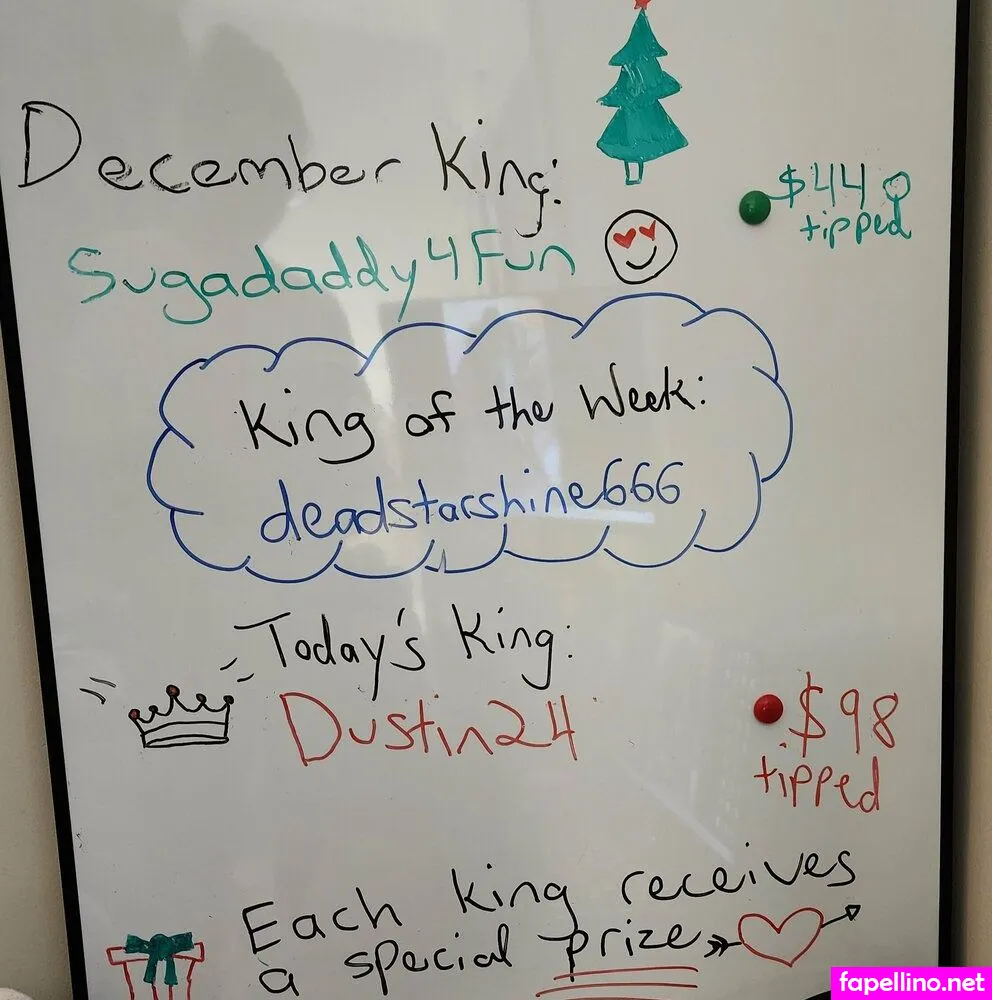 December King:
$449
tipped
Sugadaddy4Fun
King of the Week:
deadstarshine666
Today's King:
Dustin24
$98
tipped
Each king receives
a special prize
fapellino.net